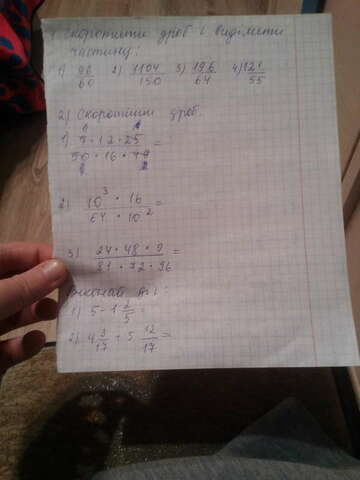 1 Скоротити дроб і виділити
частину:
1) 96/60 2) 1104/150 3) 196/64 4) 121/55
2) Скоротити дроб.
1) 5·12·25/50·16· =
2) 10³·16/64·10² =
3) 24·48·9/81·72·96 =
Виконай дії:
1) 5-1 2/5 =
2) 4 3/17 + 5 12/17 =